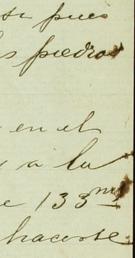 se pues
las piedras
en el
a la
e 133 ms
hacerse